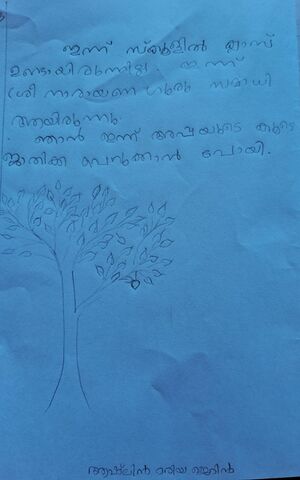 ഇന്ന് സ്കൂളിൽ ക്ലാസ്
ഉണ്ടായിരുന്നില്ല. ഇന്ന്
ശ്രീ നാരായണ ഗുരു സമാധി
ആയിരുന്നു.
ഞാൻ ഇന്ന് അമ്മയുടെ കൂടെ
ജാതിക്ക പെറുക്കാൻ പോയി.
ആഷ്‌ലിൻ മരിയ ജെറിൻ